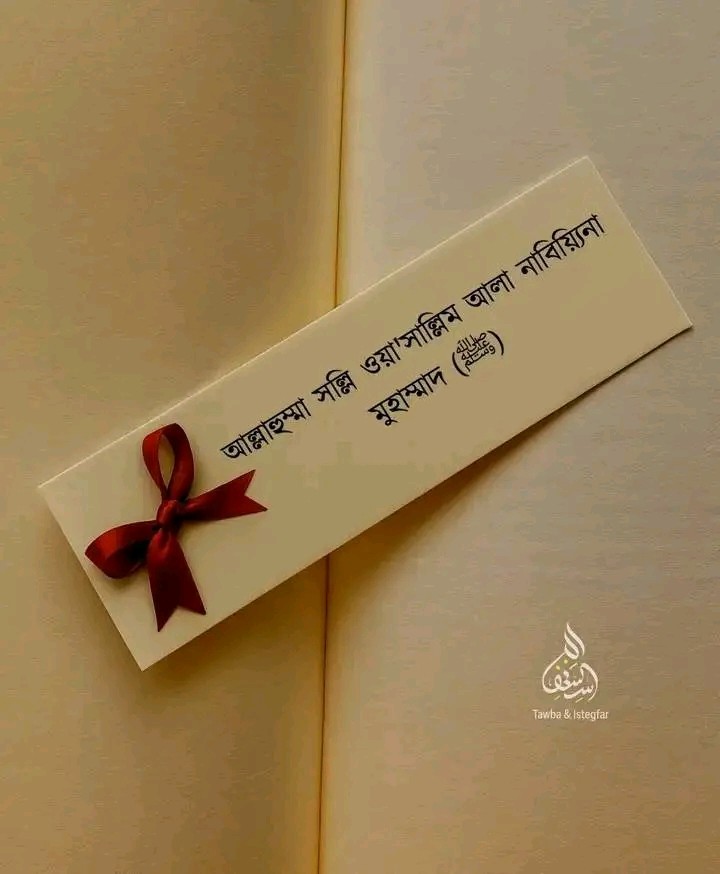 আল্লাহুম্মা সল্লি ওয়া'সাল্লিম আলা নাবিয়্যিনা
মুহাম্মাদ (ﷺ)
Tawba & Istegfar